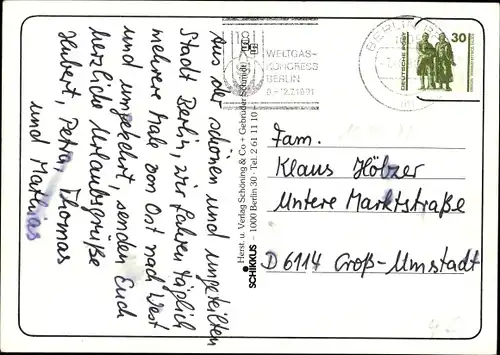 Aus der schönen und ungeteilten
Stadt Berlin, wir fahren täglich
mehrere Male von Ost nach West
und umgekehrt, senden Euch
herzliche Urlaubsgrüße
Hubert, Petra, Thomas
und Mathias
SCHIKKUS
Herst. u. Verlag Schöning & Co + Gebrüder Schmidt
– 1000 Berlin 30 · Tel. 2 61 11 10
WELTGAS-
KONGRESS
BERLIN
8.-12.7.1991
BERLIN
DEUTSCHE POST
30
Fam.
Klaus Hölzer
Untere Marktstraße
D 6114 Groß-Umstadt